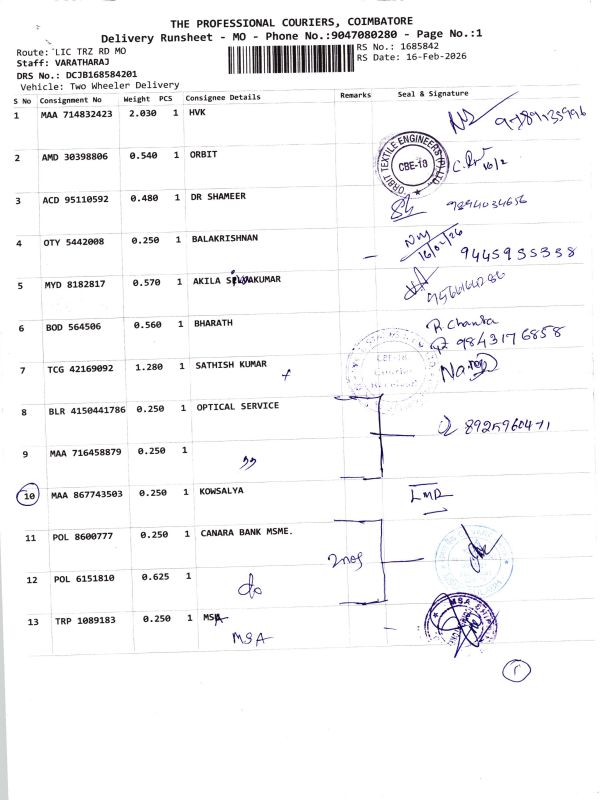 THE PROFESSIONAL COURIERS, COIMBATORE
Delivery Runsheet - MO - Phone No.:9047080280 - Page No.:1
Route: LIC TRZ RD MO
RS No.: 1685842
Staff: VARATHARAJ
RS Date: 16-Feb-2026
DRS No.: DCJB168584201
Vehicle: Two Wheeler Delivery
S No Consignment No Weight PCS Consignee Details Remarks Seal & Signature
1 MAA 714832423 2.030 1 HVK
2 AMD 30398806 0.540 1 ORBIT
ORBIT TEXTILE ENGINEERS (P) LTD. CBE-18
16/2
3 ACD 95110592 0.480 1 DR SHAMEER 9894034656
4 OTY 5442008 0.250 1 BALAKRISHNAN
16/02/26 9445935358
5 MYD 8182817 0.570 1 AKILA
6 BOD 564506 0.560 1 BHARATH
R. Chandra
9843176858
7 TCG 42169092 1.280 1 SATHISH KUMAR
CBE-18
Courier
Received
8 BLR 4150441786 0.250 1 OPTICAL SERVICE
8925960471
9 MAA 716458879 0.250 1 ,,
10 MAA 867743503 0.250 1 KOWSALYA
11 POL 8600777 0.250 1 CANARA BANK MSME.
2nos
12 POL 6151810 0.625 1 do
13 TRP 1089183 0.250 1 MSA
MSA